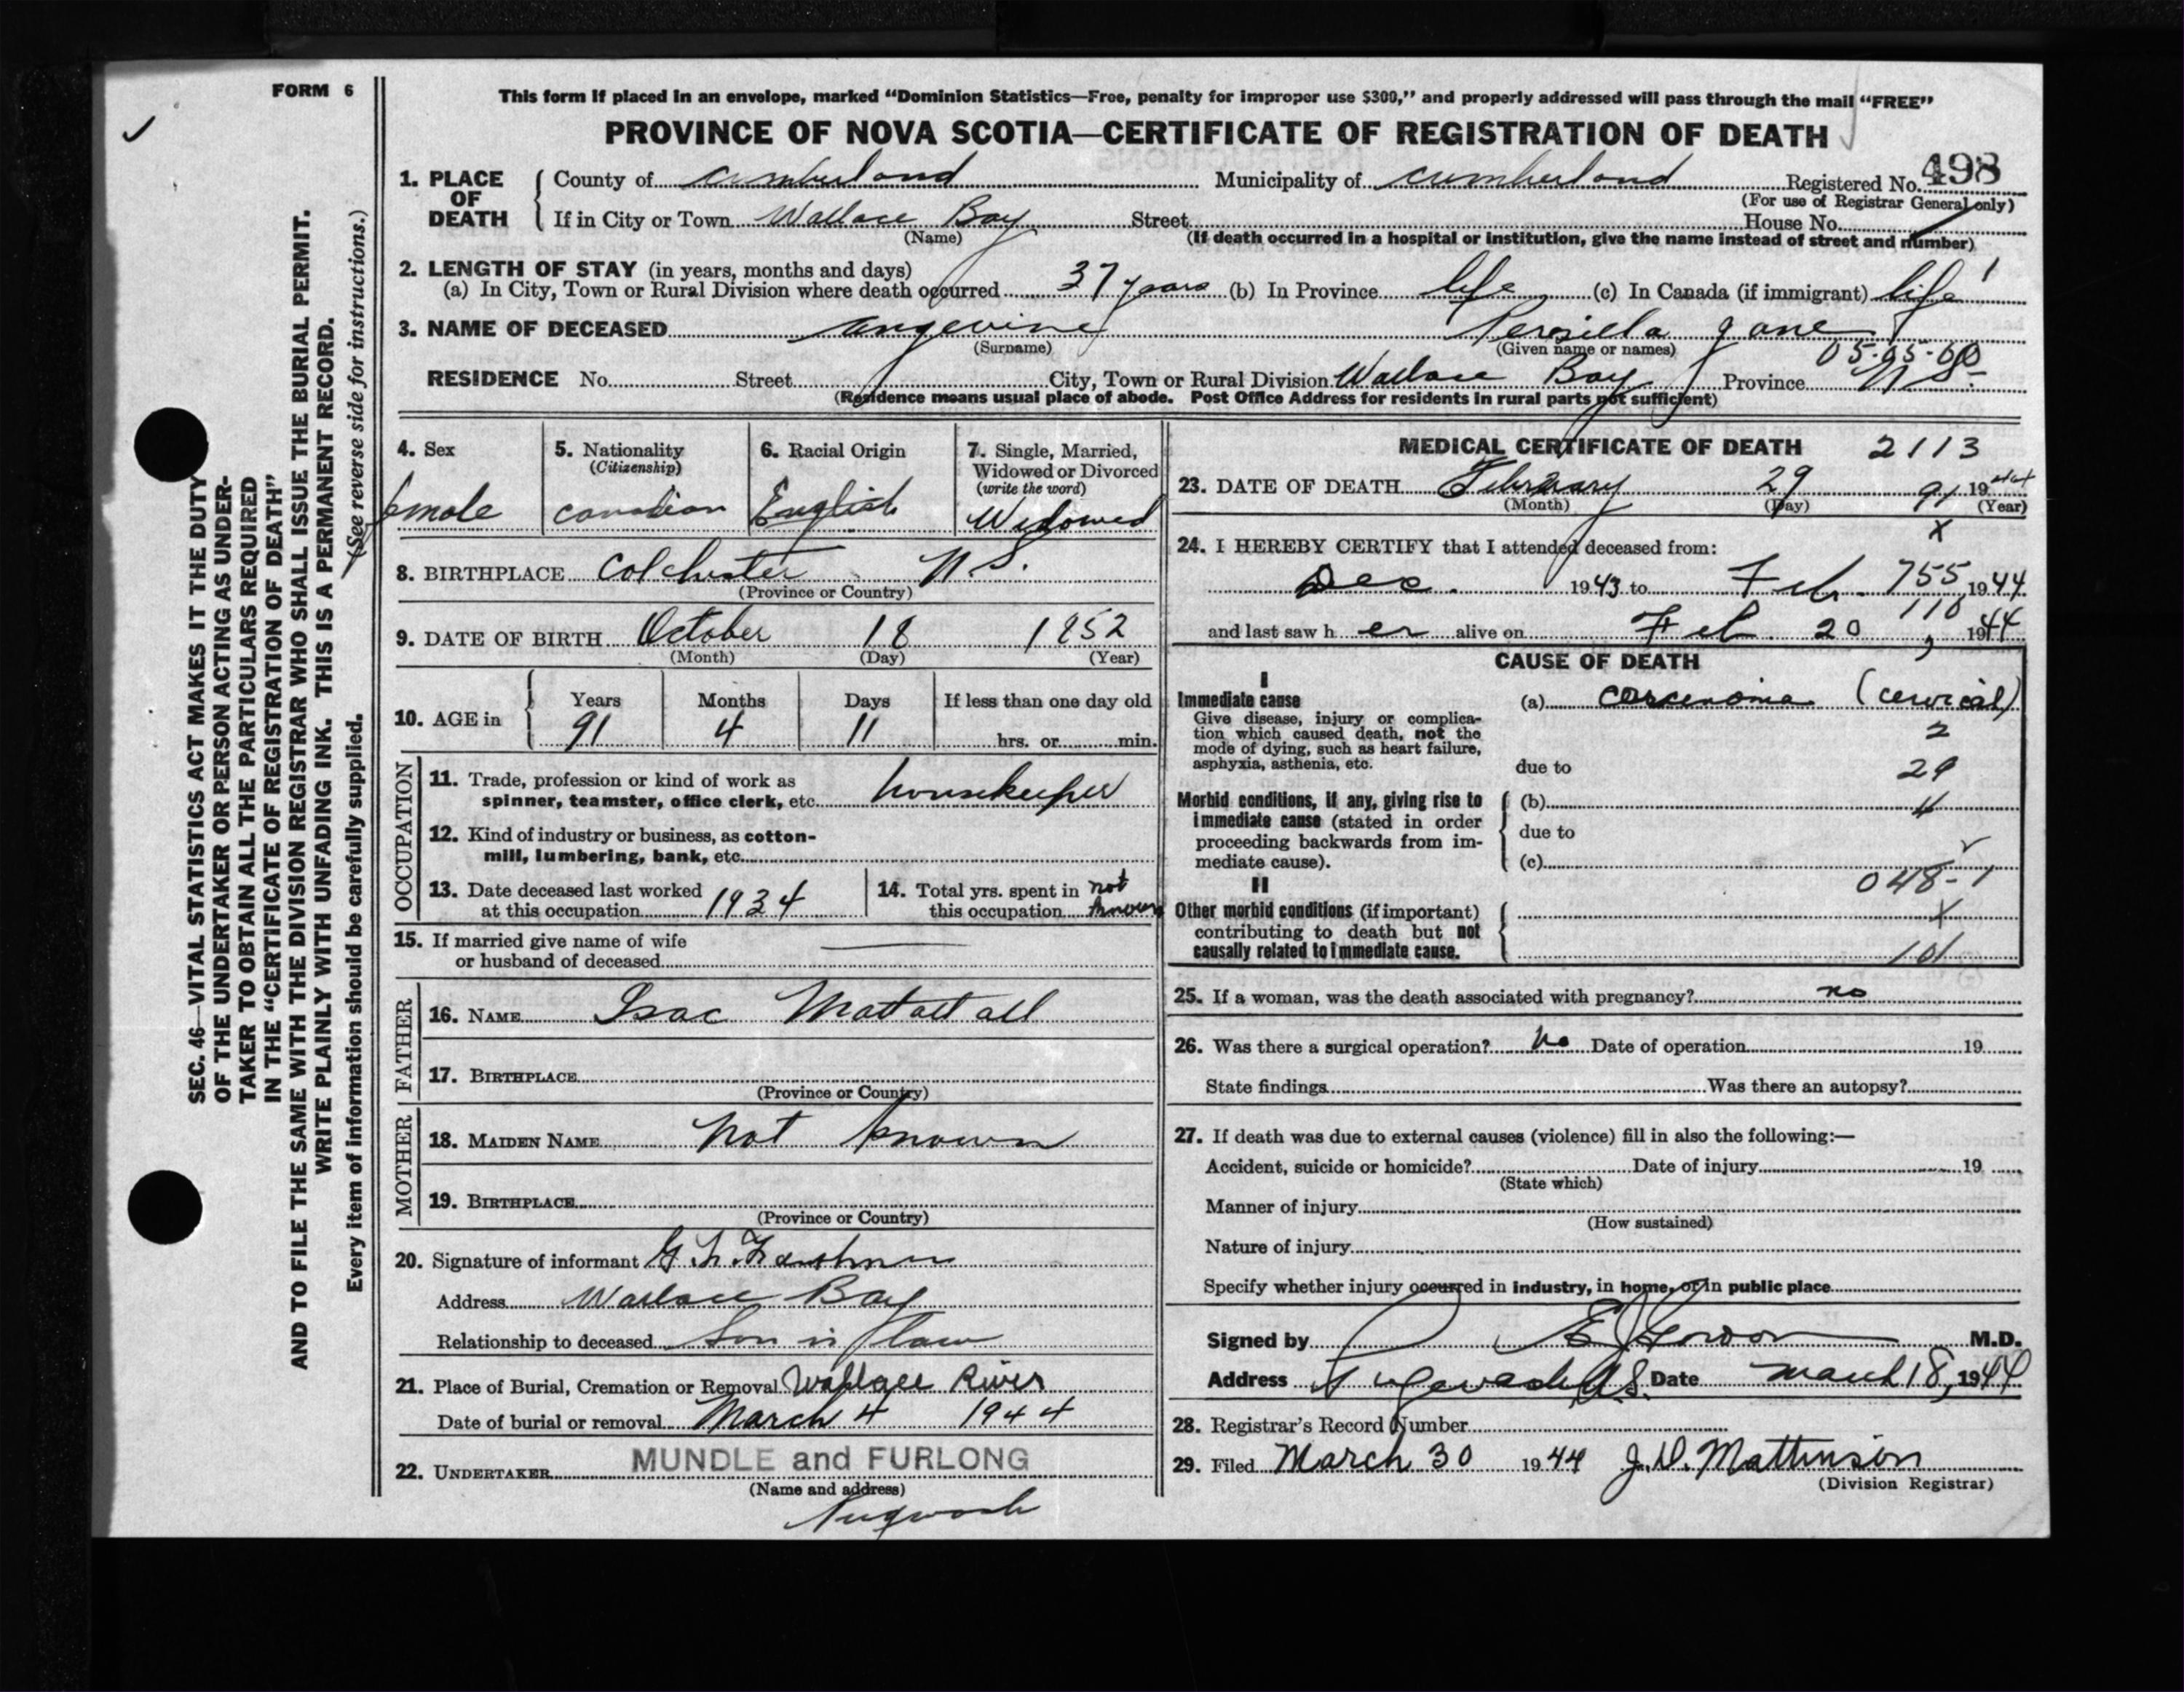 FORM 6
✓
SEC. 46—VITAL STATISTICS ACT MAKES IT THE DUTY
OF THE UNDERTAKER OR PERSON ACTING AS UNDER-
TAKER TO OBTAIN ALL THE PARTICULARS REQUIRED
IN THE "CERTIFICATE OF REGISTRATION OF DEATH"
AND TO FILE THE SAME WITH THE DIVISION REGISTRAR WHO SHALL ISSUE THE BURIAL PERMIT.
WRITE PLAINLY WITH UNFADING INK. THIS IS A PERMANENT RECORD.
Every item of information should be carefully supplied. (See reverse side for instructions.)
This form if placed in an envelope, marked "Dominion Statistics—Free, penalty for improper use $300," and properly addressed will pass through the mail "FREE"
PROVINCE OF NOVA SCOTIA—CERTIFICATE OF REGISTRATION OF DEATH
1. PLACE OF DEATH
County of Cumberland Municipality of Cumberland Registered No. 498
(For use of Registrar General only)
If in City or Town Wallace Bay Street House No.
(Name) (If death occurred in a hospital or institution, give the name instead of street and number)
2. LENGTH OF STAY (in years, months and days)
(a) In City, Town or Rural Division where death occurred 37 years (b) In Province life (c) In Canada (if immigrant) life
3. NAME OF DECEASED Angevine Persilla Jane
(Surname) (Given name or names)
05-05-00
RESIDENCE No. Street City, Town or Rural Division Wallace Bay Province N.S.
(Residence means usual place of abode. Post Office Address for residents in rural parts not sufficient)
4. Sex
female
5. Nationality
(Citizenship)
canadian
6. Racial Origin
English
7. Single, Married,
Widowed or Divorced
(write the word)
Widowed
8. BIRTHPLACE Colchester N.S.
(Province or Country)
9. DATE OF BIRTH October 18 1852
(Month) (Day) (Year)
10. AGE in
Years Months Days If less than one day old
91 4 11 hrs. or min.
OCCUPATION
11. Trade, profession or kind of work as
spinner, teamster, office clerk, etc. housekeeper
12. Kind of industry or business, as cotton-
mill, lumbering, bank, etc.
13. Date deceased last worked
at this occupation 1934
14. Total yrs. spent in not
this occupation known
15. If married give name of wife
or husband of deceased
FATHER
16. NAME Isac Mattattall
17. BIRTHPLACE
(Province or Country)
MOTHER
18. MAIDEN NAME Not known
19. BIRTHPLACE
(Province or Country)
20. Signature of informant
Address Wallace Bay
Relationship to deceased Son in law
21. Place of Burial, Cremation or Removal Wallace River
Date of burial or removal March 4 1944
22. UNDERTAKER MUNDLE and FURLONG
(Name and address)
Pugwash
MEDICAL CERTIFICATE OF DEATH 2113
23. DATE OF DEATH February 29 91 1944
(Month) (Day) (Year)
x
24. I HEREBY CERTIFY that I attended deceased from:
Dec. 1943 to Feb. 755 1944
110
and last saw her alive on Feb. 20, 1944
CAUSE OF DEATH
I
Immediate cause
Give disease, injury or complica-
tion which caused death, not the
mode of dying, such as heart failure,
asphyxia, asthenia, etc.
(a) carcenoma (cervical)
2
due to 29
Morbid conditions, if any, giving rise to
immediate cause (stated in order
proceeding backwards from im-
mediate cause).
(b) 4
due to
(c)
048-1
II
Other morbid conditions (if important)
contributing to death but not
causally related to immediate cause.
x
101
25. If a woman, was the death associated with pregnancy? no
26. Was there a surgical operation? No Date of operation 19
State findings Was there an autopsy?
27. If death was due to external causes (violence) fill in also the following:—
Accident, suicide or homicide? Date of injury 19
(State which)
Manner of injury
(How sustained)
Nature of injury
Specify whether injury occurred in industry, in home, or in public place
Signed by M.D.
Address Pugwash N.S. Date March 18, 1944
28. Registrar's Record Number
29. Filed March 30 1944 J.D. Mattinson
(Division Registrar)